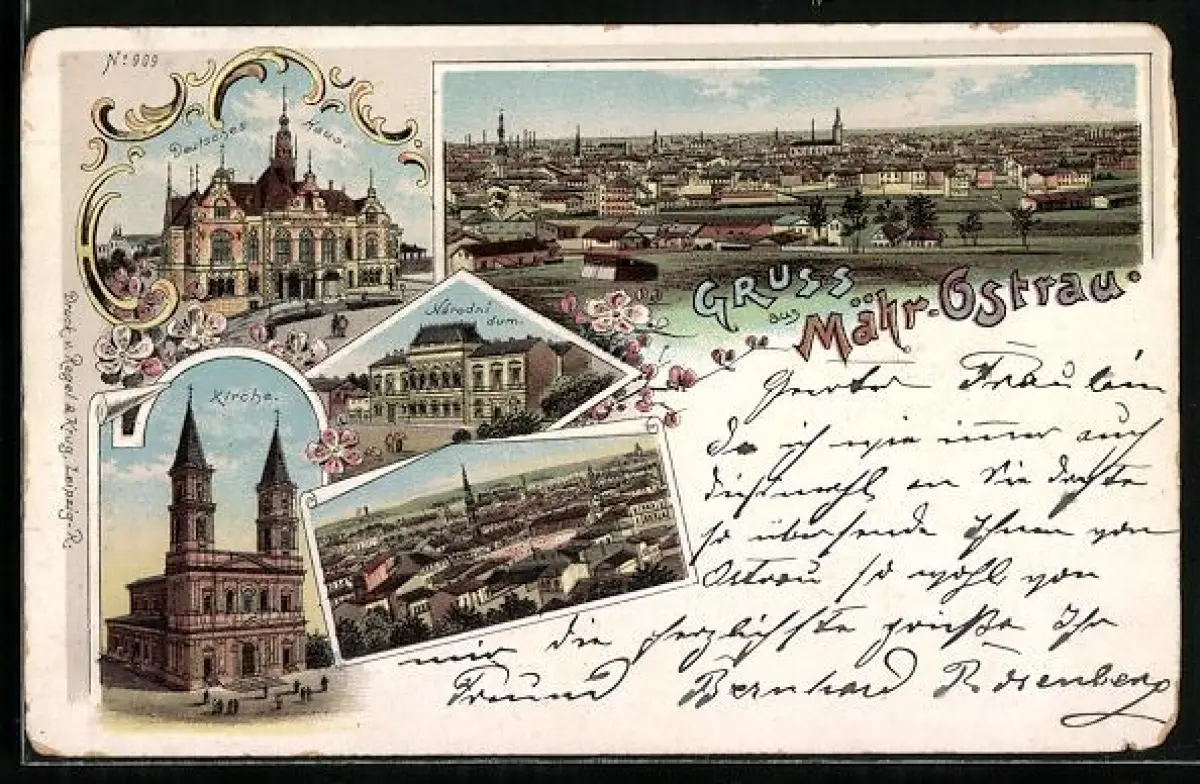 No 909
Deutsches Haus.
Národní dum.
Kirche.
Druck v. Regel & Krug, Leipzig-R.
GRUSS
aus
Mähr.-Ostrau.
Geerter Fräulein
da ich wie immer auch
dießmahl an Sie dachte
so übersende Ihnen von
Ostrau so wohl von
mir die herzlichste grüße Ihr
Freund Bernhard Rosenberg